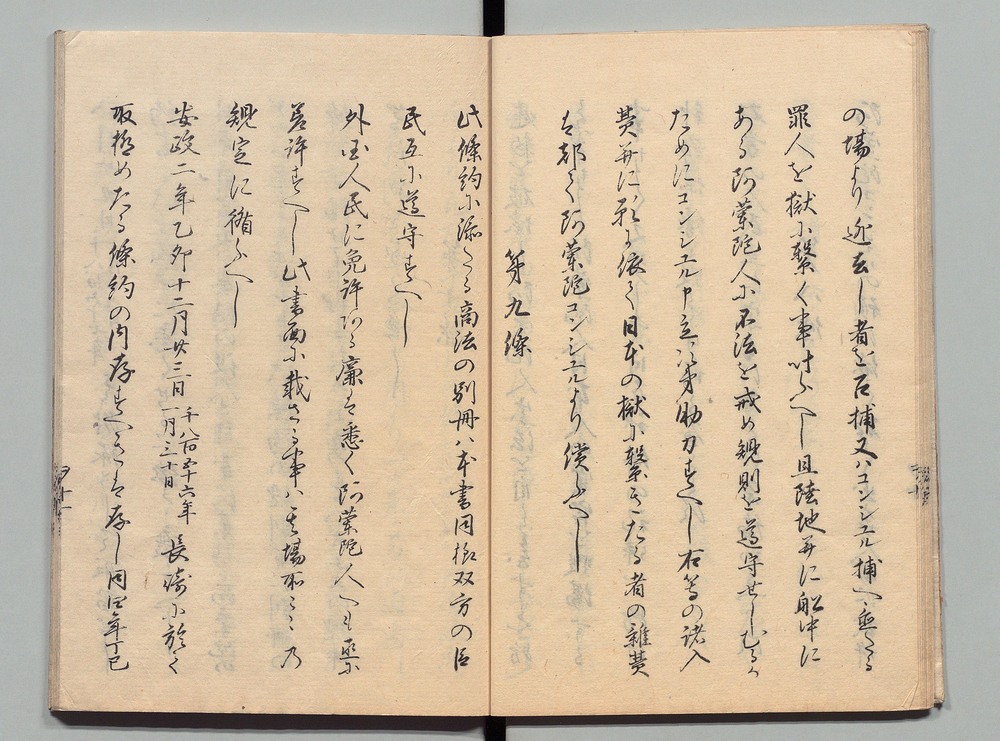 の場より逃去し者を召捕又ハコンシユル捕へ兼たる
罪人を獄に繋く事叶ふへし且陸地并に船中に
ある阿蘭陀人に不法を戒め規則を遵守せしむるか
ためにコンシユル申立次第助力すへし右等の諸入
費并に願に依て日本の獄に繋きたる者の雑費
は都て阿蘭陀コンシユルより償ふへし
第九條
此條約に添たる商法の別冊ハ本書同様双方の臣
民互に遵守すへし
外国人民に免許ある廉は悉く阿蘭陀人へも
差許すへし此書面に載さる事ハ其場所々々乃
規定に循ふへし
安政二年乙卯十二月廿三日 千八百五十六年一月三十日 長崎に於て
取極めたる條約の内存すへきは存し同四年丁巳